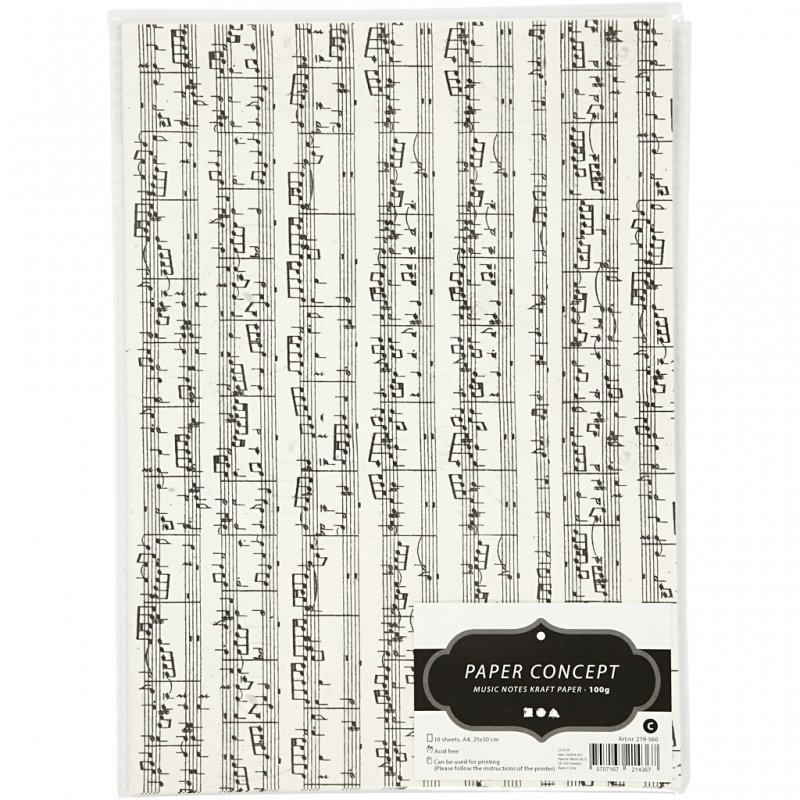 PAPER CONCEPT
MUSIC NOTES KRAFT PAPER · 100g
C
10 sheets, A4, 21x30 cm
Art.nr. 219-560
Acid free
Can be used for printing
(Please follow the instructions of the printer)
5707167 214367